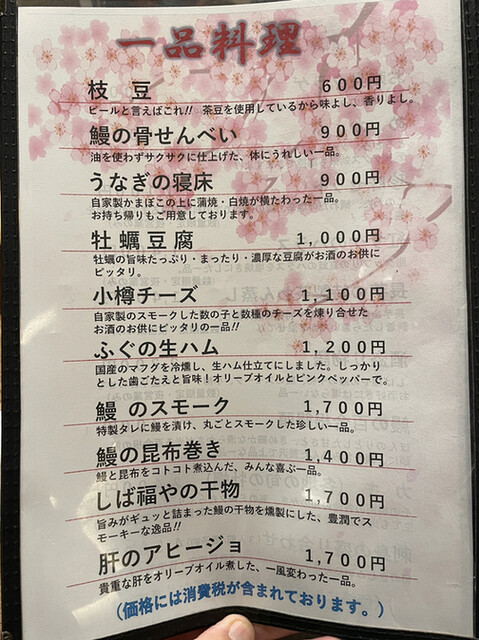 一品料理
枝豆 600円
ビールと言えばこれ!! 茶豆を使用しているから味よし、香りよし。
鰻の骨せんべい 900円
油を使わずサクサクに仕上げた、体にうれしい一品。
うなぎの寝床 900円
自家製かまぼこの上に蒲焼・白焼が横たわった一品。
お持ち帰りもご用意しております。
牡蠣豆腐 1,000円
牡蠣の旨味たっぷり・まったり・濃厚な豆腐がお酒のお供に
ピッタリ。
小樽チーズ 1,100円
自家製のスモークした数の子と数種のチーズを煉り合せた
お酒のお供にピッタリの一品!!
ふぐの生ハム 1,200円
国産のマフグを冷燻し、生ハム仕立てにしました。しっかり
とした歯ごたえと旨味！オリーブオイルとピンクペッパーで。
鰻 のスモーク 1,700円
特製タレに鰻を漬け、丸ごとスモークした珍しい一品。
鰻の昆布巻き 1,400円
鰻と昆布をコトコト煮込んだ、みんな喜ぶ一品。
しば福やの干物 1,700円
旨みがギュッと詰まった鰻の干物を燻製にした、豊潤でス
モーキーな逸品!!
肝のアヒージョ 1,700円
貴重な肝をオリーブオイル煮した、一風変わった一品。
（価格には消費税が含まれております。）